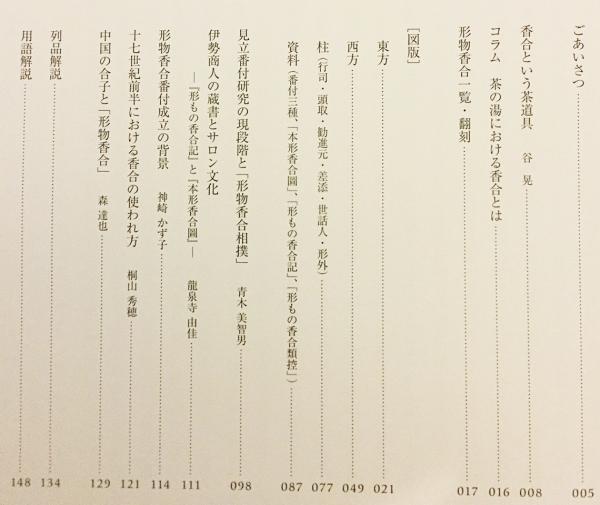 ごあいさつ 005
香合という茶道具 谷 晃 008
コラム 茶の湯における香合とは 016
形物香合一覧・翻刻 017
［図版］
東方 021
西方 049
柱（行司・頭取・勧進元・差添・世話人・形外） 077
資料（番付三種、「本形香合圖」、「形もの香合記」、「形もの香合類控」） 087
見立番付研究の現段階と「形物香合相撲」 青木 美智男 098
伊勢商人の蔵書とサロン文化
―『形もの香合記』と『本形香合圖』― 龍泉寺 由佳 111
形物香合番付成立の背景 神崎 かず子 114
十七世紀前半における香合の使われ方 桐山 秀穂 121
中国の合子と「形物香合」 森 達也 129
列品解説 134
用語解説 148